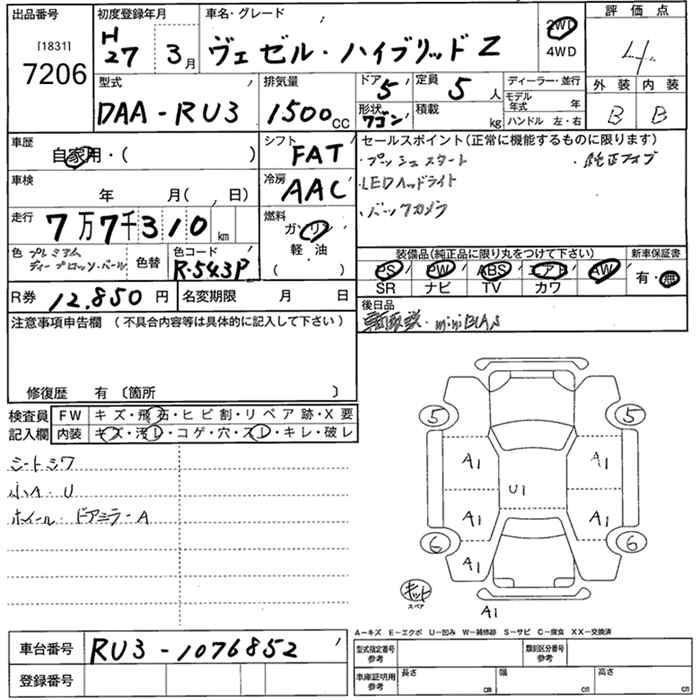 出品番号
[1831]
7206
初度登録年月
H
27 3月
車名・グレード
ヴェゼル・ハイブリッド Z
2WD
4WD
評価点
4
外装 内装
B B
型式
DAA-RU3
排気量
1500cc
ドア
5
定員
5人
形状
ワゴン
積載
kg
ディーラー・並行
モデル年式 年
ハンドル 左・右
車歴
自家用・( )
シフト
FAT
車検
年 月( , 日)
冷房
AAC
走行
7万7千310km
燃料
ガソリン
軽・油
( )
色 プレミアム
ディープロッソ・パール
色替
色コード
R-543P
R券 12,850円
名変期限 月 日
セールスポイント(正常に機能するものに限ります)
・プッシュスタート ・純正ナビ
・LEDヘッドライト
・バックカメラ
装備品(純正品に限り丸をつけて下さい)
PS PW ABS エアB AW
SR ナビ TV カワ
新車保証書
有・無
後日品
注意事項申告欄(不具合内容等は具体的に記入して下さい)
修復歴 有〔箇所 〕
検査員記入欄
FW キズ・飛石・ヒビ割・リペア跡・X要
内装 キズ・汚レ・コゲ・穴・スレ・キレ・破レ
シートシワ
小A・U
ホイール・ドアミラーA
5 5
A1 A1
U1
A1 A1
6 6
A1
キット
スペア
A1
A−キズ E−エクボ U−凹み W−補修跡 S−サビ C−腐食 XX−交換済
車台番号 RU3-1076852
登録番号
型式指定番号
参考
類別区分番号
参考
車庫証明用
参考
長さ cm 幅 cm 高さ cm